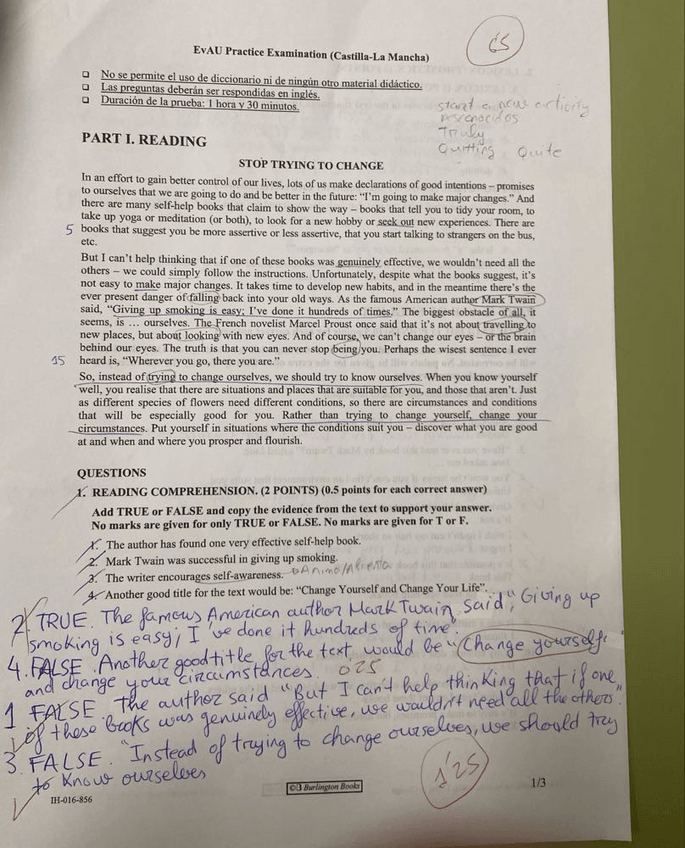 6'5
EvAU Practice Examination (Castilla-La Mancha)
❑ No se permite el uso de diccionario ni de ningún otro material didáctico.
❑ Las preguntas deberán ser respondidas en inglés.
❑ Duración de la prueba: 1 hora y 30 minutos.
start a new activity
Truly
Quitting Quite
PART I. READING
STOP TRYING TO CHANGE
In an effort to gain better control of our lives, lots of us make declarations of good intentions – promises
to ourselves that we are going to do and be better in the future: “I’m going to make major changes.” And
there are many self-help books that claim to show the way – books that tell you to tidy your room, to
take up yoga or meditation (or both), to look for a new hobby or seek out new experiences. There are
5 books that suggest you be more assertive or less assertive, that you start talking to strangers on the bus,
etc.
But I can’t help thinking that if one of these books was genuinely effective, we wouldn’t need all the
others – we could simply follow the instructions. Unfortunately, despite what the books suggest, it’s
not easy to make major changes. It takes time to develop new habits, and in the meantime there’s the
ever present danger of falling back into your old ways. As the famous American author Mark Twain
said, “Giving up smoking is easy; I’ve done it hundreds of times.” The biggest obstacle of all, it
seems, is … ourselves. The French novelist Marcel Proust once said that it’s not about travelling to
new places, but about looking with new eyes. And of course, we can’t change our eyes – or the brain
behind our eyes. The truth is that you can never stop being you. Perhaps the wisest sentence I ever
15 heard is, “Wherever you go, there you are.”
So, instead of trying to change ourselves, we should try to know ourselves. When you know yourself
well, you realise that there are situations and places that are suitable for you, and those that aren’t. Just
as different species of flowers need different conditions, so there are circumstances and conditions
that will be especially good for you. Rather than trying to change yourself, change your
circumstances. Put yourself in situations where the conditions suit you – discover what you are good
at and when and where you prosper and flourish.
QUESTIONS
1. READING COMPREHENSION. (2 POINTS) (0.5 points for each correct answer)
Add TRUE or FALSE and copy the evidence from the text to support your answer.
No marks are given for only TRUE or FALSE. No marks are given for T or F.
1. The author has found one very effective self-help book.
2. Mark Twain was successful in giving up smoking.
3. The writer encourages self-awareness. Anima/Alienta
4. Another good title for the text would be: “Change Yourself and Change Your Life”.
2 TRUE. The famous American author Mark Twain said, "Giving up
smoking is easy; I've done it hundreds of time".
4. FALSE. Another good title for the text would be "Change yourself
and change your circumstances. 0'25
1 FALSE The author said "But I can't help thinking that if one
of these books was genuinely effective, we wouldn't need all the others".
3 FALSE. "Instead of trying to change ourselves, we should try
to know ourselves
1'25
© Burlington Books
1/3
IH-016-856